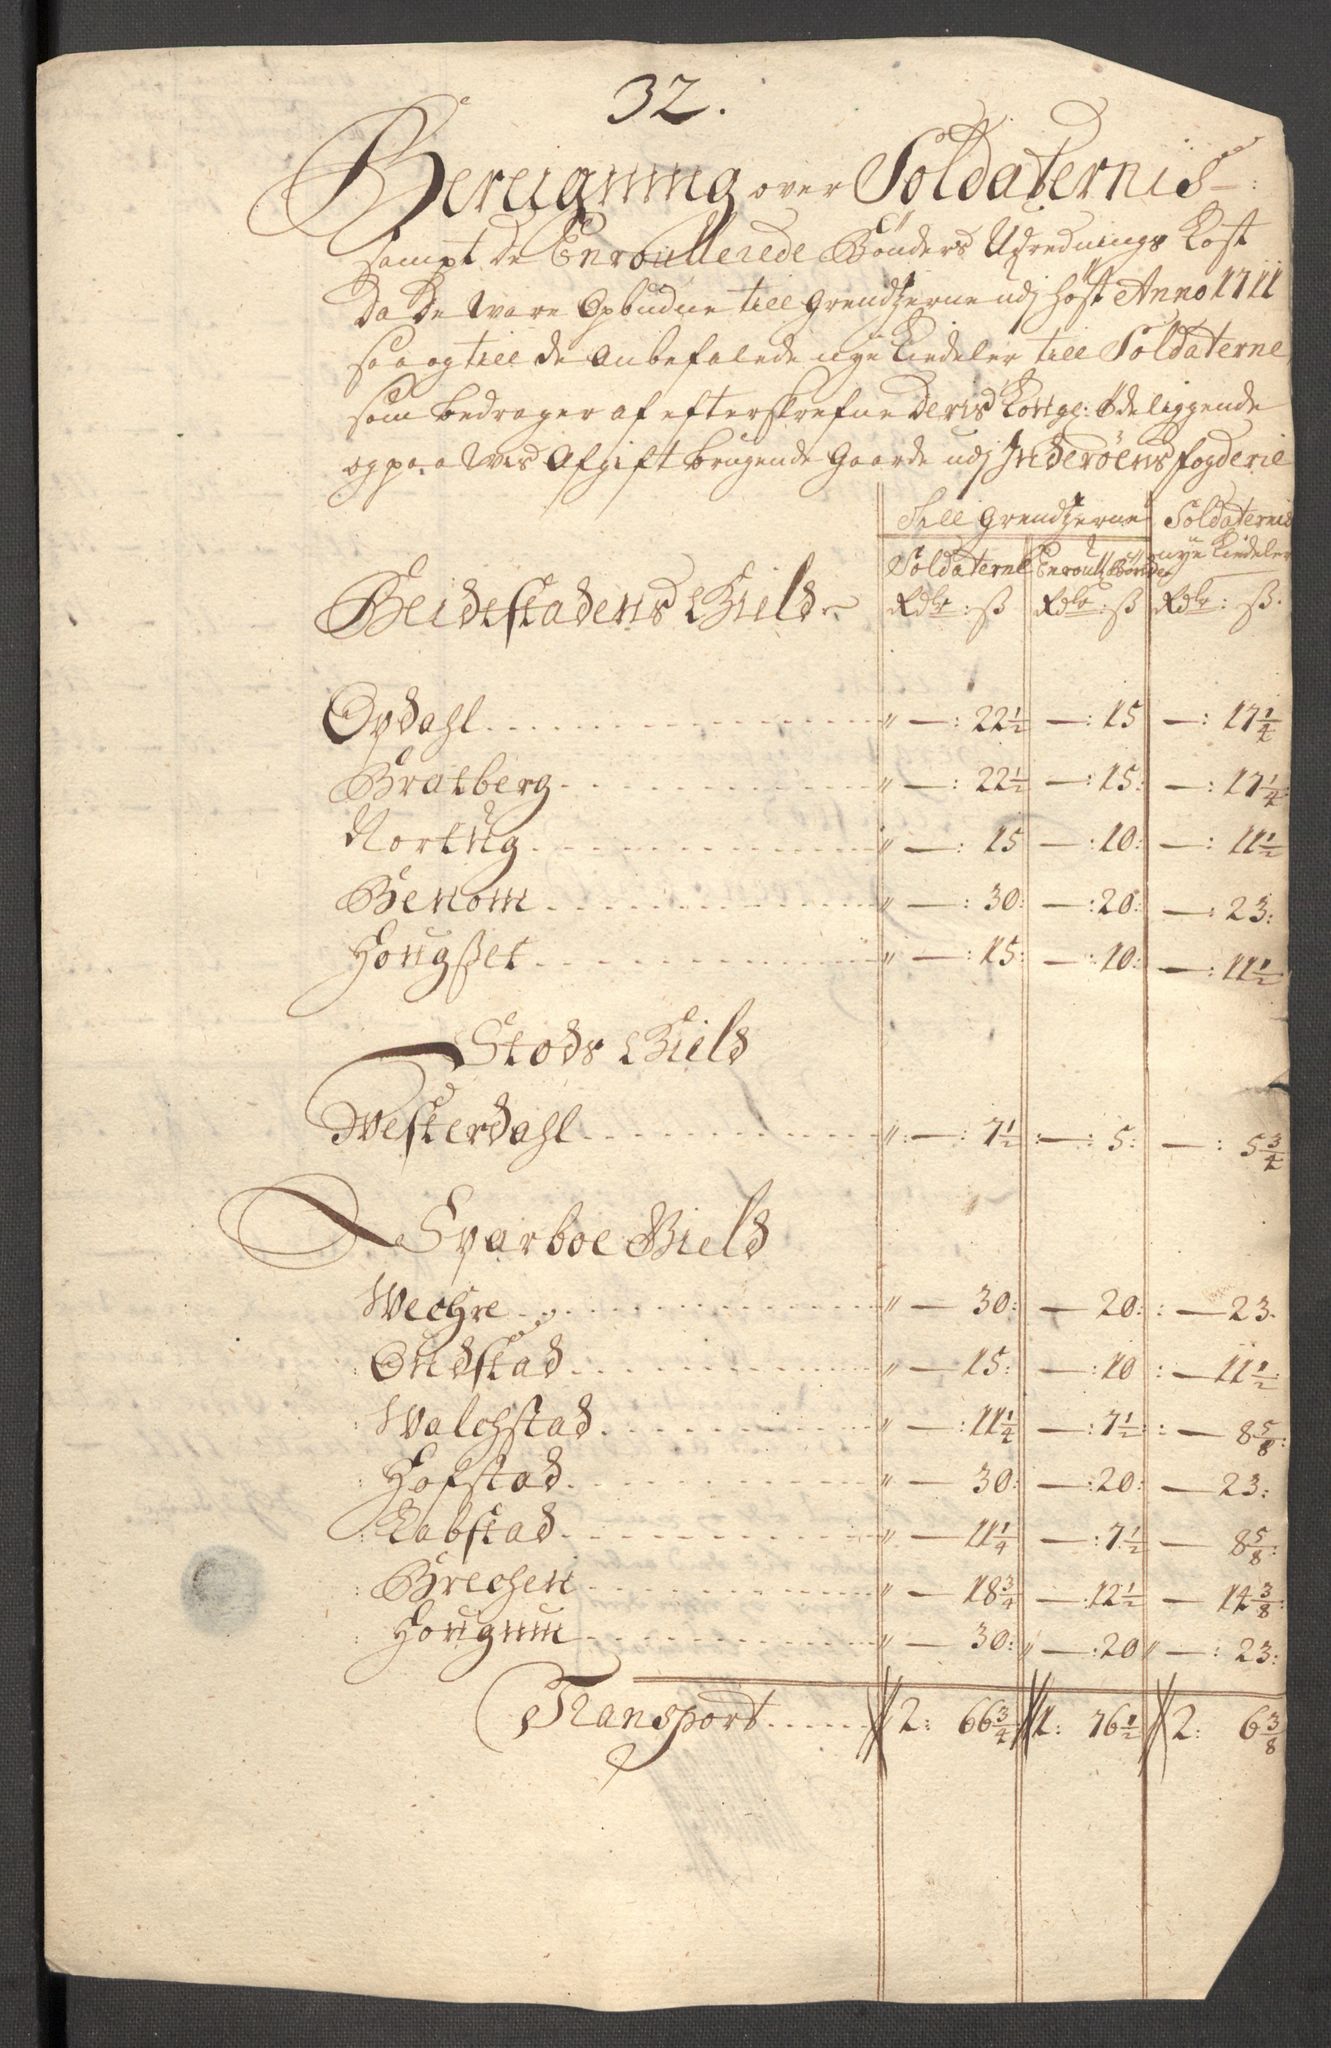 32.
Bereigning over Soldaternis
sampt de Enroullerede Bønders Udrednings Kost
da de vare Opbudne till Grendtzerne udj høst Anno 1711
saa og till de Anbefalede nye Kiedeler till Soldaterne
som bedrager af efterskrefne Deris Kongl: Øde liggende
og paa Wis Afgift brugende Gaarde udj Inderøens fogderie
Till Grendtzerne Soldaternis
Soldaterne Enroull: Bønder nye Kiedeler
Beidstadens Gield Rdlr: ß Rdlr: ß Rdlr: ß.
Opdahl " — : 22½ — : 15 — : 17¼
Bratberg " — : 22½ — : 15: — : 17¼:
Nortug " — : 15 — : 10: — : 11½
Benom " — : 30: — : 20: — : 23:
Hougßet " — : 15: — : 10: — : 11½
Stods Gield
Westerdahl ": — : 7½ : — : 5: — : 5¾
Sparboe Gield
Wechre " — 30: — 20: : — 23.
Ondstad " — 15: — : 10 : — 11½
Walchstad " — : 11¼ — : 7½ : — 8⅝:
Hofstad " — 30: — : 20: — 23:
Labstad " — 11¼ — : 7½ — 8⅝:
Brechen " — 18¾ — : 12½ — 14⅜:
Hougnum " — 30: " — : 20 " — : 23:
Transport 2: 66¾ 1: 76½ 2: 6⅜